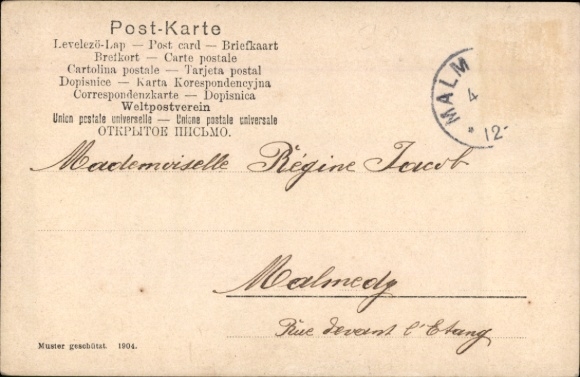 Post-Karte
Levelező-Lap — Post card — Briefkaart
Brefkort — Carte postale
Cartolina postale — Tarjeta postal
Dopisnice — Karta Korespondencyjna
Correspondenzkarte — Dopisnica
Weltpostverein
Union postale universelle — Unione postale universale
ОТКРЫТОЕ ПИСЬМО.
MALM
4
* 12-
Mademoiselle Régine Jacob
Malmedy
Rue devant l'Etang
Muster geschützt. 1904.